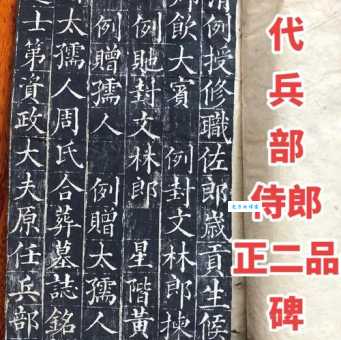 例授修職佐郎歲貢生候
飲大賓 例封文林郎揀
例貤封文林郎 星階黃
例贈孺人 例贈太孺人
太孺人周氏合葬墓誌銘
士第資政大夫原任兵部
代
兵
部
侍郎
正二品
碑